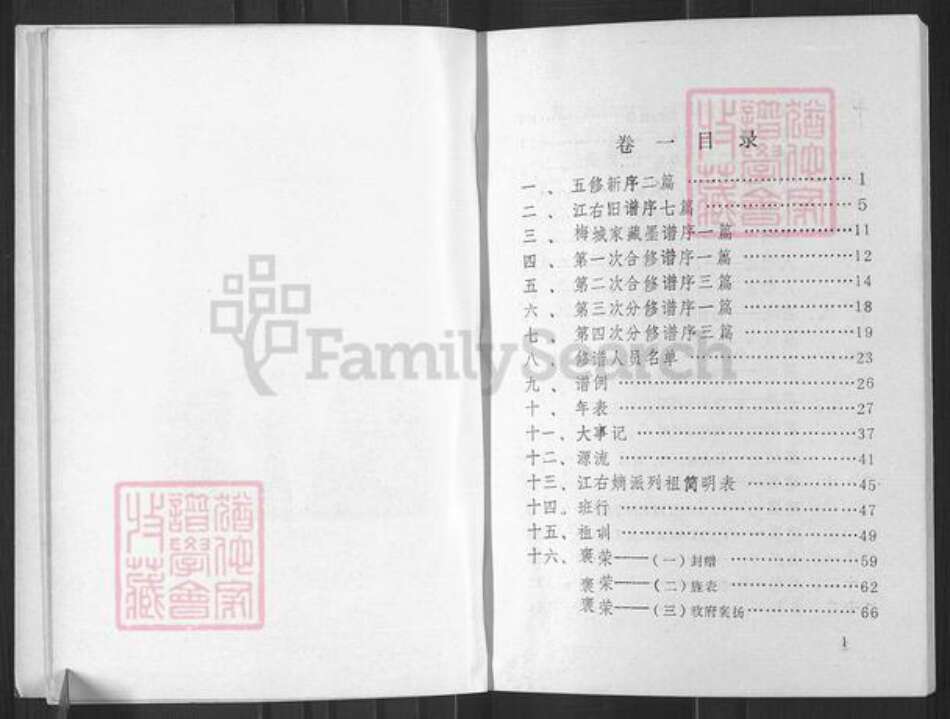 卷一目录
一、五修新序二篇……………………1
二、江右旧谱序七篇……………………5
三、梅城家藏墨谱序一篇……………………11
四、第一次合修谱序一篇……………………12
五、第二次合修谱序三篇……………………14
六、第三次分修谱序一篇……………………18
七、第四次分修谱序三篇……………………19
八、修谱人员名单……………………23
九、谱例……………………26
十、年表……………………27
十一、大事记……………………37
十二、源流……………………41
十三、江右嫡派列祖简明表……………………45
十四、班行……………………47
十五、祖训……………………49
十六、褒荣——(一)封赠……………………59
褒荣——(二)旌表……………………62
褒荣——(三)政府褒扬……………………66
1
FamilySearch